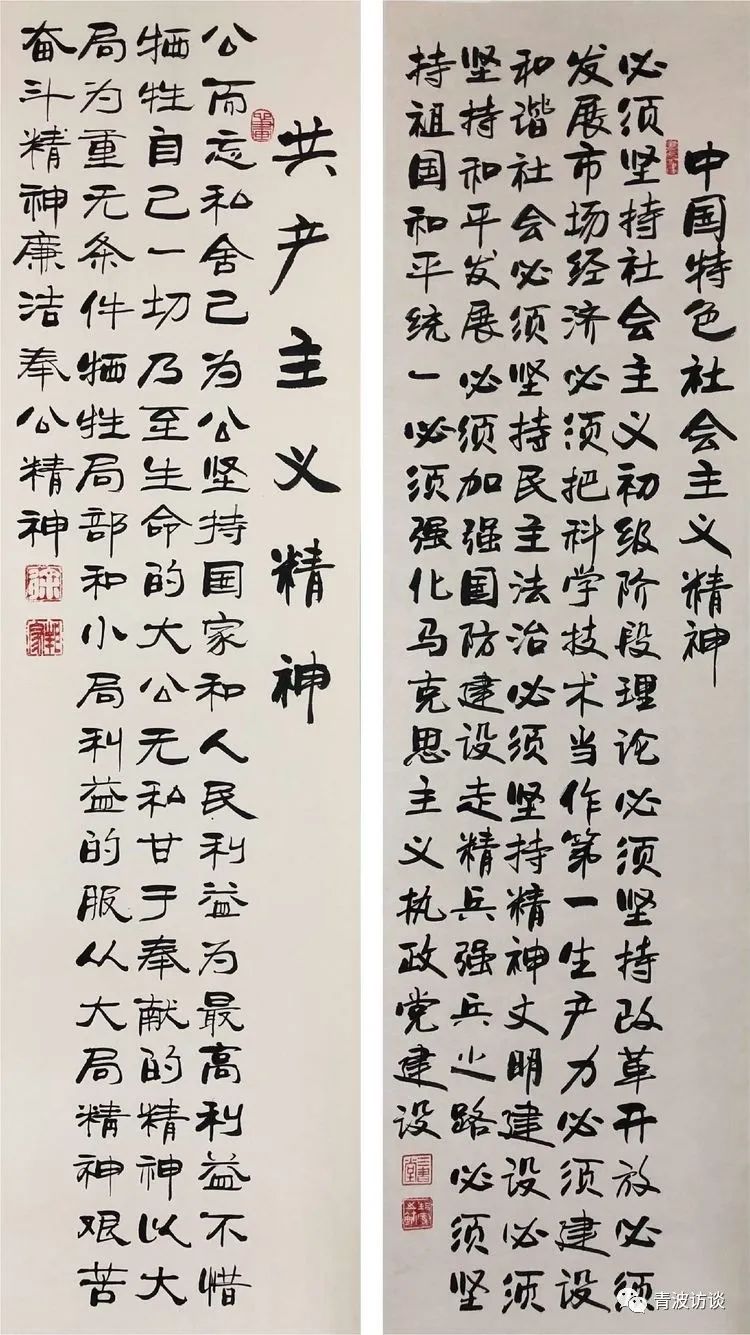 中国特色社会主义精神
必须坚持社会主义初级阶段理论必须坚持改革开放必须
发展市场经济必须把科学技术当作第一生产力必须建设
和谐社会必须坚持民主法治必须坚持精神文明建设必须
坚持和平发展必须加强国防建设走精兵强兵之路必须坚
持祖国和平统一必须强化马克思主义执政党建设
共产主义精神
公而忘私舍己为公坚持国家和人民利益为最高利益不惜
牺牲自己一切乃至生命的大公无私甘于奉献的精神以大
局为重无条件牺牲局部和小局利益的服从大局精神艰苦
奋斗精神廉洁奉公精神
青波访谈